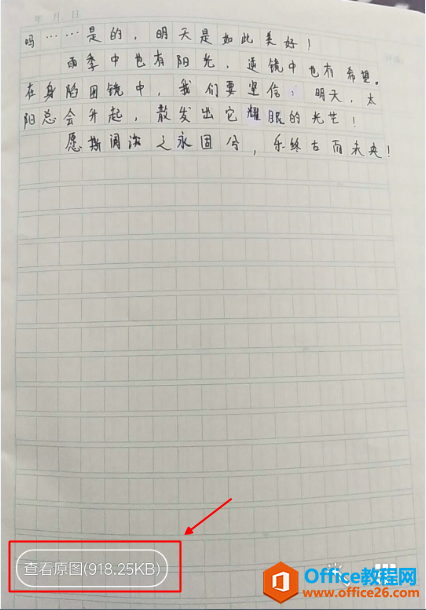 年 月 日
吗……是的，明天是如此美好！
雨季中也有阳光，逆镜中也有希望。
在身陷困镜中，我们要坚信：明天，太
阳总会升起，散发出它耀眼的光芒！
愿斯之永固兮，乐终古而未央！
查看原图(918.25KB)
Office教程网
www.office26.com